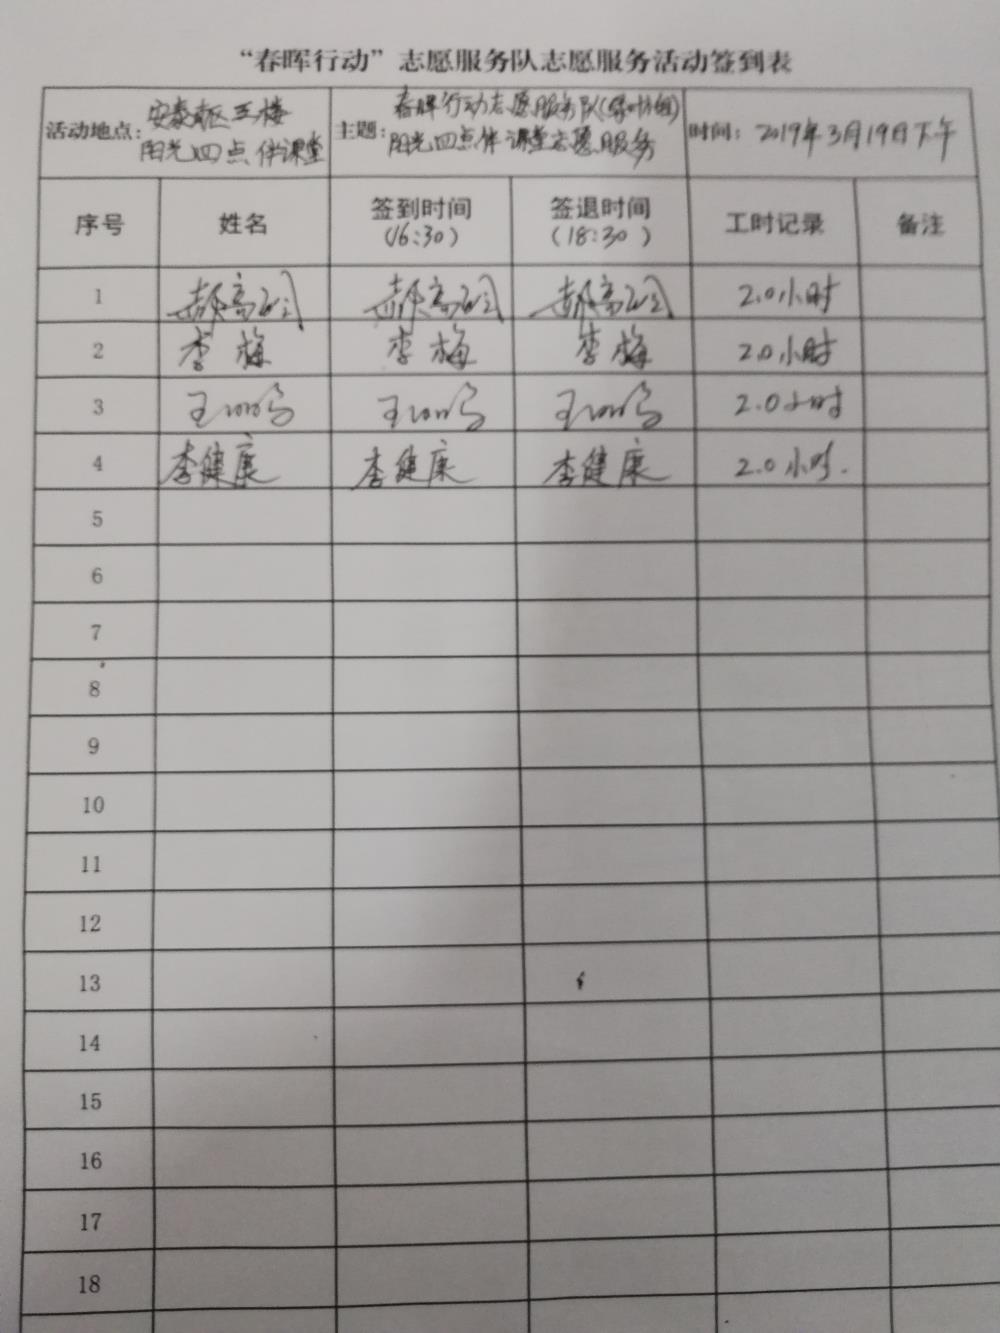 “春晖行动”志愿服务队志愿服务活动签到表
活动地点: 安泰社区三楼
阳光四点伴课堂
主题: 春晖行动志愿服务队(绿叶组)
阳光四点伴课堂志愿服务
时间: 2019年3月19日下午
序号 姓名 签到时间 签退时间 工时记录 备注
(16:30) (18:30)
1 2.0小时
2 李梅 李梅 李梅 2.0小时
3 2.0小时
4 李健康 李健康 李健康 2.0小时.
5
6
7
8
9
10
11
12
13
14
15
16
17
18